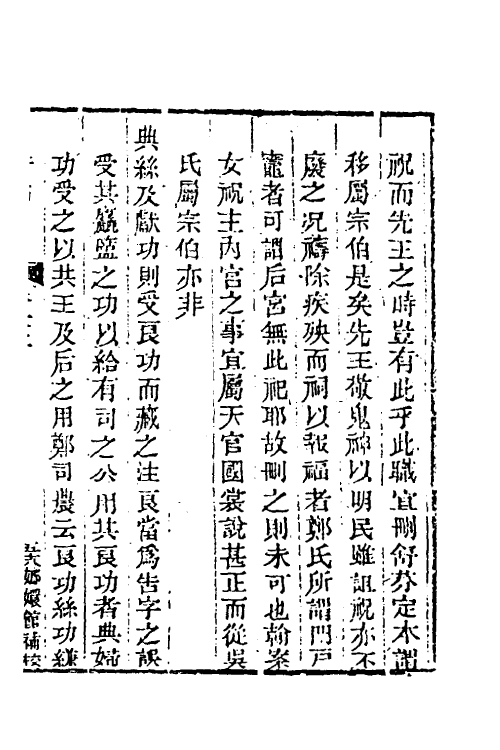 祝而先王之時豈有此乎此職宜刪舒芬定本謂
移屬宗伯是矣先王敬鬼神以明民雖詛祝亦不
廢之况禱除疾殃而祠以報福者鄭氏所謂門戸
竈者可謂后宮無此祀耶故刪之則未可也翰案
女祝主內官之事宜屬天官國裳說甚正而從吳
氏屬宗伯亦非
典絲及獻功則受良功而藏之注良當爲苦字之誤
受其麤盬之功以給有司之公用其良功者典婦
功受之以共王及后之用鄭司農云良功絲功縑
嫏嬛館補校